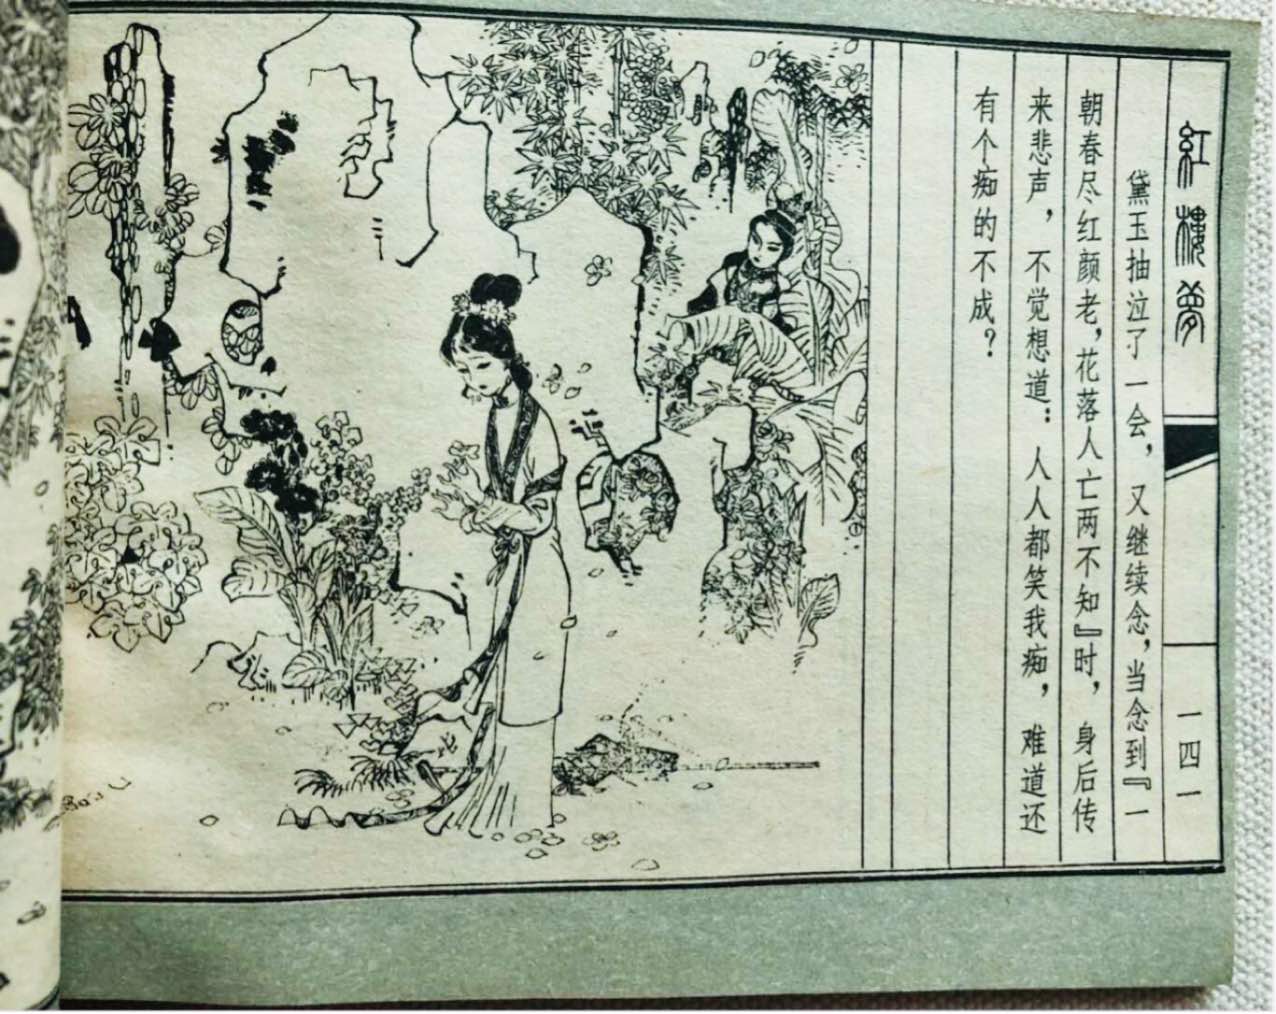 红楼梦
一四一
黛玉抽泣了一会，又继续念，当念到『一
朝春尽红颜老，花落人亡两不知』时，身后传
来悲声，不觉想道：人人都笑我痴，难道还
有个痴的不成？